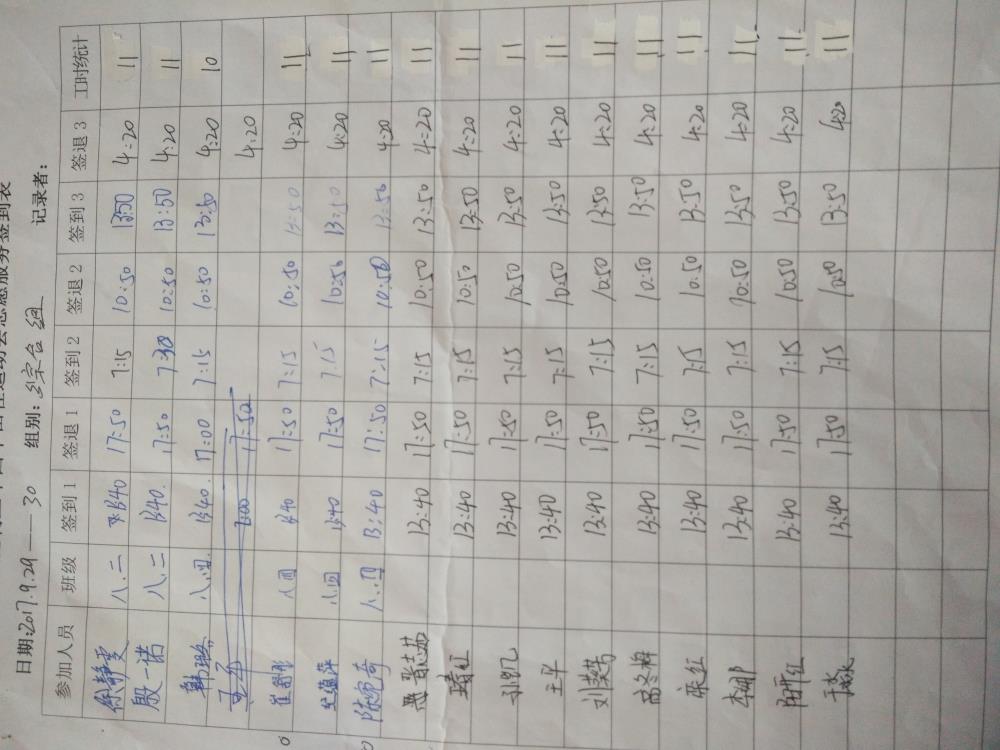 运动会志愿服务签到表
日期:2017.9.29 — 30 组别: 记录者:
参加人员 班级 签到1 签退1 签到2 签退2 签到3 签退3 工时统计
徐静雯 八.二 13:40 17:50 7:15 10:50 13:50 4:20 11
殷一诺 八.二 13:40. 17:50 7:30 10:50 13:50 4:20 11
韩 八.四. 13:40. 17:00 7:15 10:50 13:50 4:20 10
17:50 4:20
崔 八四 13:40 17:50 7:15 10:50 13:50 4:20 11
八.四 13:40 17:50 7:15 10:50 13:50 4:20 11
陈宛奇 八.四 13:40 17:50 7:15 10:50 13:50 4:20 11
13:40 17:50 7:15 10:50 13:50 4:20 11
13:40 17:50 7:15 10:50 13:50 4:20 11
孙凯 13:40 17:50 7:15 10:50 13:50 4:20 11
王平 13:40 17:50 7:15 10:50 13:50 4:20 11
刘英 13:40 17:50 7:15 10:50 13:50 4:20 11
高冬梅 13:40 17:50 7:15 10:50 13:50 4:20 11
13:40 17:50 7:15 10:50 13:50 4:20 11
李娜 13:40 17:50 7:15 10:50 13:50 4:20 11
13:40 17:50 7:15 10:50 13:50 4:20 11
于 13:40 17:50 7:15 10:50 13:50 4:20 11